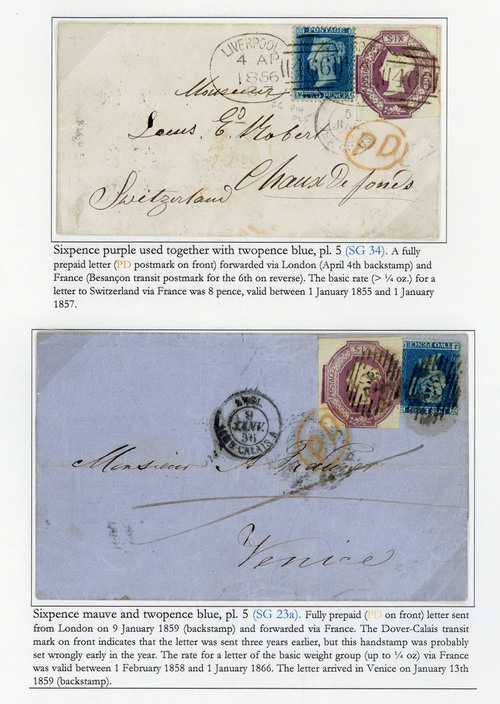 LIVERPOOL
4 AP
1856
POSTAGE
SIX
Monsieur
PD
Switzerland
Chaux de fonds
Sixpence purple used together with twopence blue, pl. 5 (SG 34). A fully
prepaid letter (PD postmark on front) forwarded via London (April 4th backstamp) and
France (Besançon transit postmark for the 6th on reverse). The basic rate (> ¼ oz.) for a
letter to Switzerland via France was 8 pence, valid between 1 January 1855 and 1 January
1857.
SIX
TWO PENCE
ANGL.
9
JANV.
56
CALAIS A
PD
Monsieur A
Venice
Sixpence mauve and twopence blue, pl. 5 (SG 23a). Fully prepaid (PD on front) letter sent
from London on 9 January 1859 (backstamp) and forwarded via France. The Dover-Calais transit
mark on front indicates that the letter was sent three years earlier, but this handstamp was probably
set wrongly early in the year. The rate for a letter of the basic weight group (up to ¼ oz) via France
was valid between 1 February 1858 and 1 January 1866. The letter arrived in Venice on January 13th
1859 (backstamp).